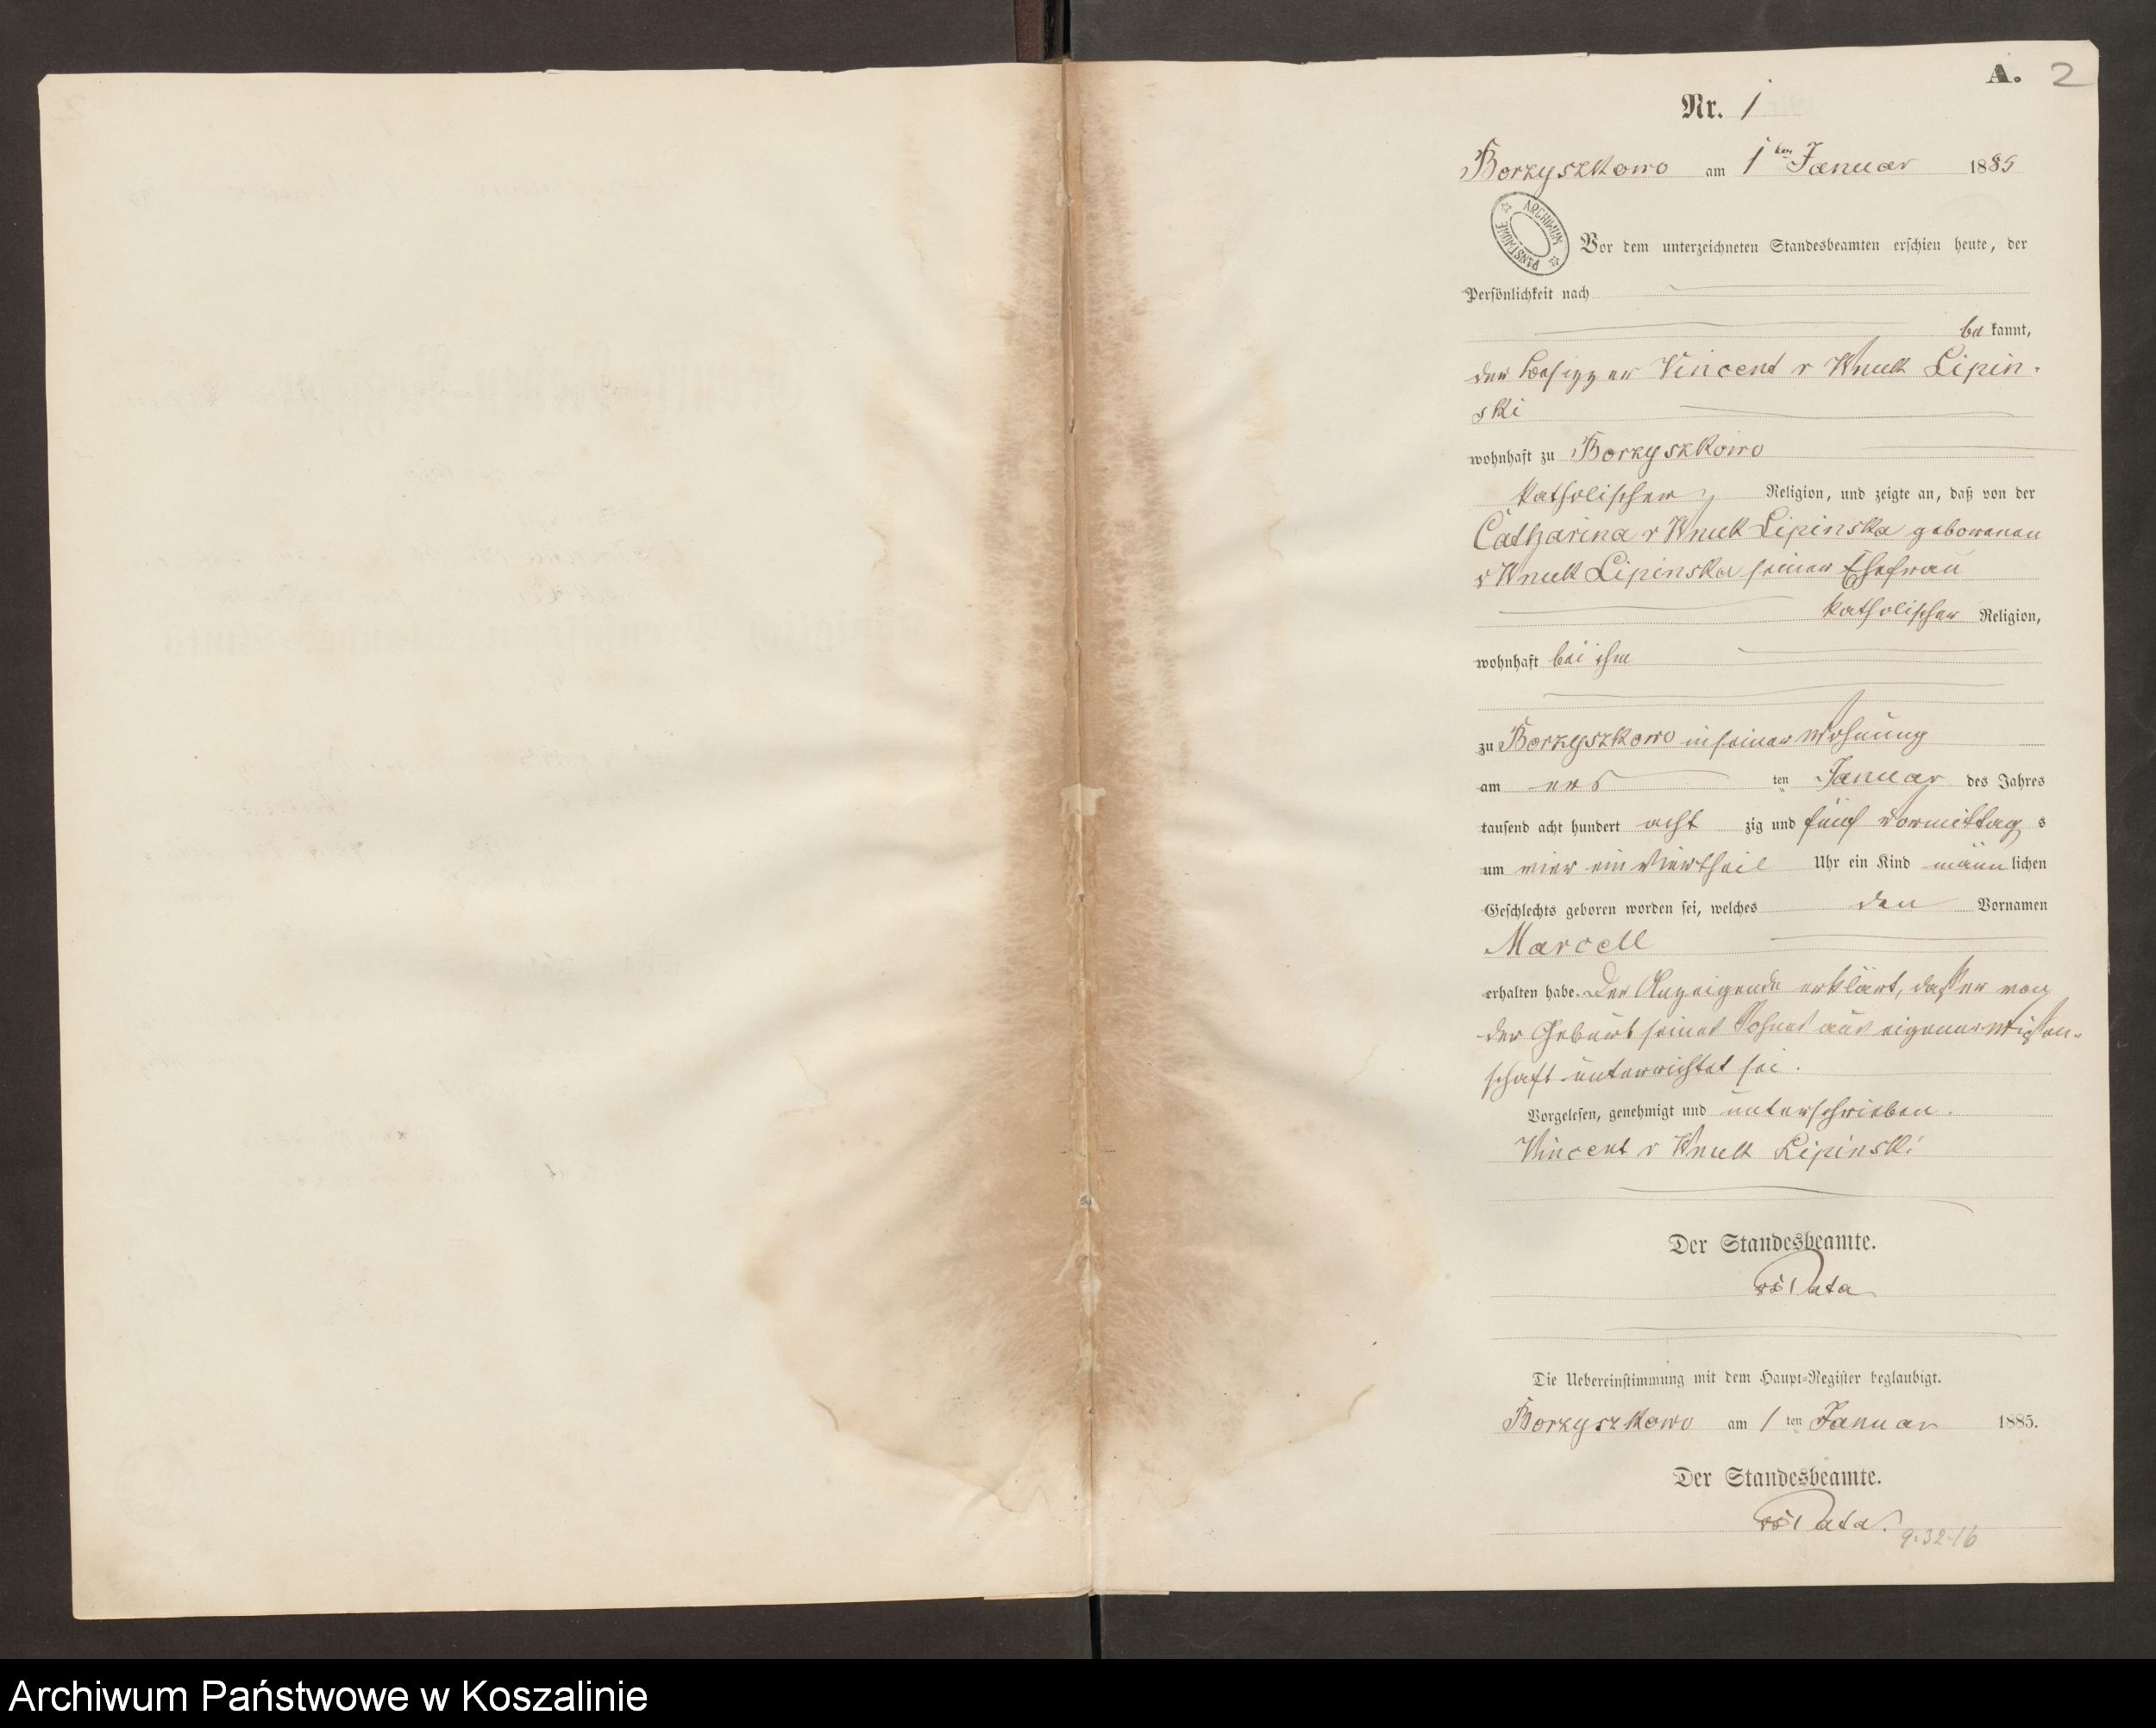 A. 2
Nr. 1
Borzyszkowo am 1ten Januar 1885
ARCHIWUM PAŃSTWOWE
Vor dem unterzeichneten Standesbeamten erschien heute, der
Persönlichkeit nach
be kannt,
der Besizzer Vincent v Wnuck Lipin-
ski
wohnhaft zu Borzyszkowo
katholischer Religion, und zeigte an, daß von der
Catharina v Wnuck Lipinska geborenen
v Wnuck Lipinska seiner Ehefrau
katholischer Religion,
wohnhaft bei ihm
zu Borzyszkowo in seiner Wohnung
am ers ten Januar des Jahres
tausend acht hundert acht zig und fünf Vormittag s
um vier ein Viertheil Uhr ein Kind männ lichen
Geschlechts geboren worden sei, welches den Vornamen
Marcell
erhalten habe. Der Anzeigende erklärt, daß er von
der Geburt seines Sohnes aus eigener Wißen-
schaft unterrichtet sei.
Vorgelesen, genehmigt und unterschrieben.
Vincent v Wnuck Lipinski
Der Standesbeamte.
Die Uebereinstimmung mit dem Haupt-Register beglaubigt.
Borzyszkowo am 1 ten Januar 1885.
Der Standesbeamte.
9.32-16
Archiwum Państwowe w Koszalinie